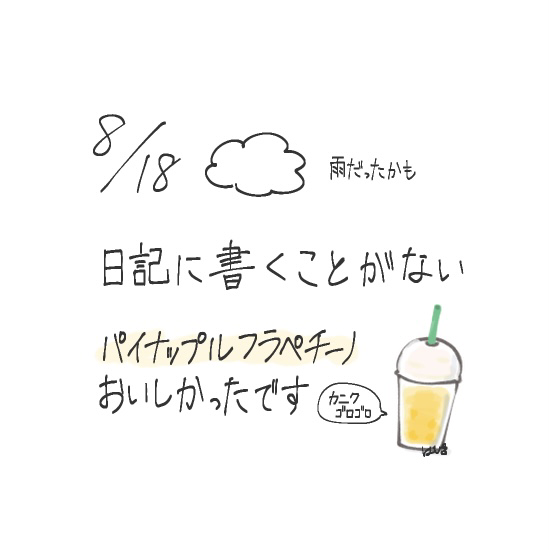 8/18
雨だったかも
日記に書くことがない
パイナップルフラペチーノ
おいしかったです
カニク
ゴロゴロ